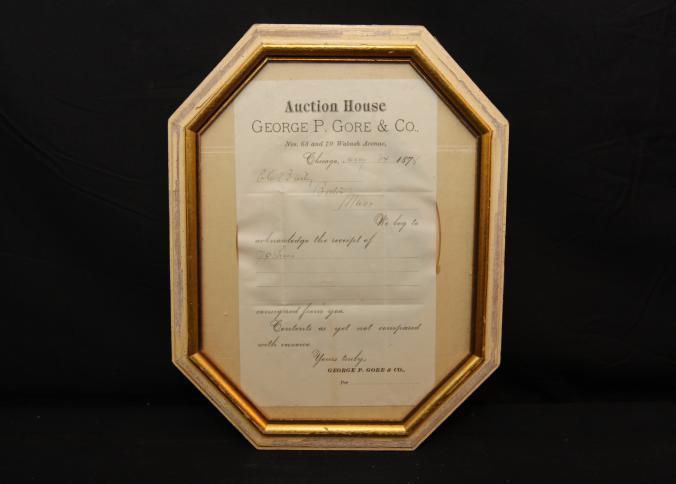 Auction House
GEORGE P. GORE & CO.,
Nos. 68 and 70 Wabash Avenue,
Chicago, 14 187
Boston
Mass
We beg to
acknowledge the receipt of
consigned from you.
Contents as yet not compared
with invoice.
Yours truly,
GEORGE P. GORE & CO.,
Per